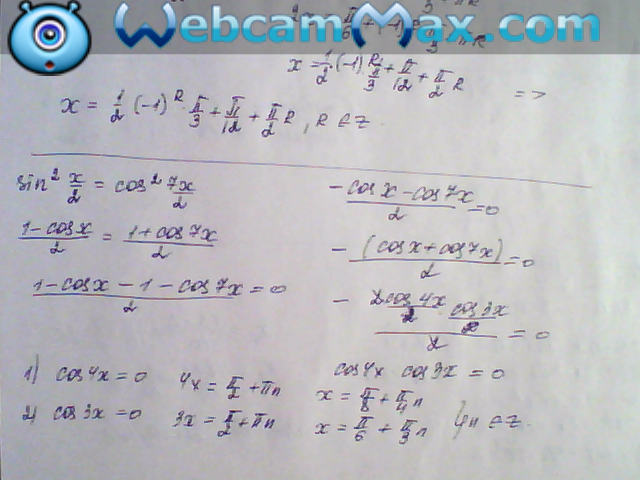 WebcamMax.com
x = 1/2 (-1)^R · π/3 + π/12 + π/2 R =>
x = 1/2 (-1)^R · π/3 + π/12 + π/2 R, R ∈ Z
sin² x/2 = cos² 7x/2
(1-cosx)/2 = (1+cos7x)/2
(1-cosx-1-cos7x)/2 = 0
(-cosx-cos7x)/2 = 0
- (cosx+cos7x)/2 = 0
- (2cos4x/2 cos3x/2)/2 = 0
cos4x cos3x = 0
1) cos4x = 0 4x = π/2 + πn x = π/8 + π/4 n
2) cos3x = 0 3x = π/2 + πn x = π/6 + π/3 n n ∈ Z